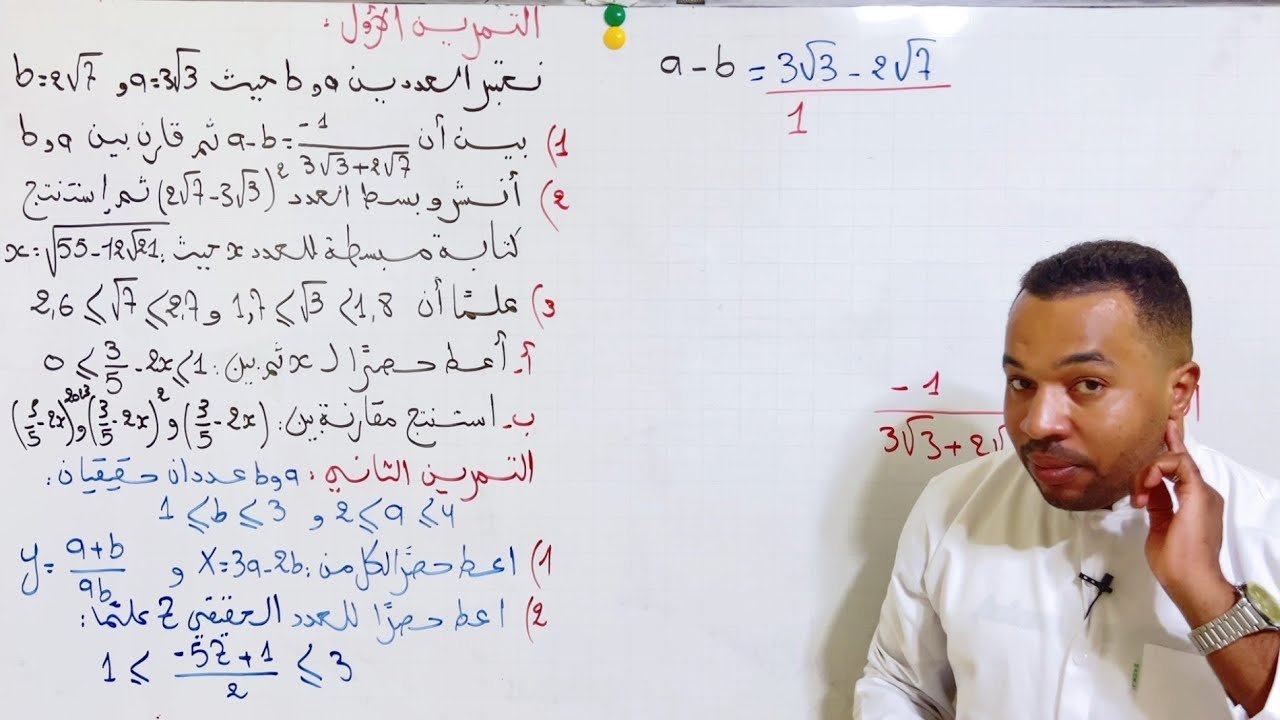 التمرين الأول:
نعتبر العددين a و b حيث a=3√3 و b=2√7
1) بين أن a-b=-1/(3√3+2√7) ثم قارن بين a و b
2) أنشر و بسط العدد (2√7-3√3)² ثم إستنتج
كتابة مبسطة للعدد x حيث: x=√(55-12√21)
3) علمًا أن 1,7⩽√3⩽1,8 و 2,6⩽√7⩽2,7
أ- أعط حصرًا لـ x ثم بين: 0⩽3/5-2x⩽1
ب- استنتج مقارنة بين: (3/5-2x) و (3/5-2x)² و (3/5-2x)²⁰²³
التمرين الثاني: a و b عددان حقيقيان:
2⩽a⩽4 و 1⩽b⩽3
1) اعط حصرًا لكل من: X=3a-2b و y=(a+b)/ab
2) اعط حصرًا للعدد الحقيقي Z علمًا:
1⩽(-5Z+1)/2⩽3
a-b=(3√3-2√7)/1
-1/(3√3+2√